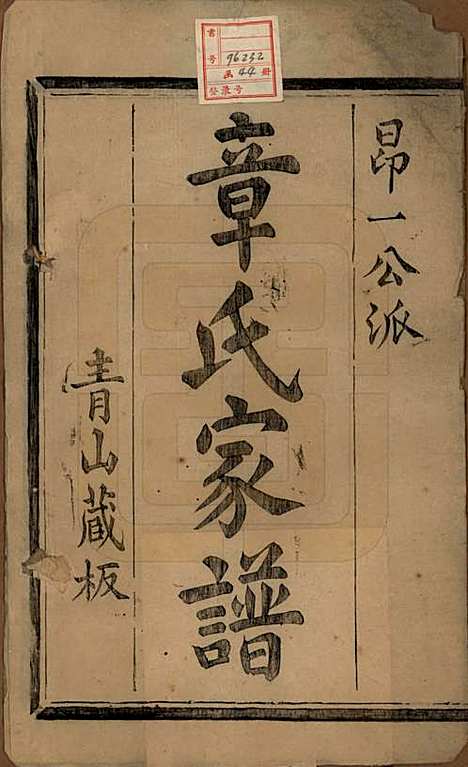 書號 96232
函 44 冊
登录号
昂一公派
章氏家譜
青山藏板